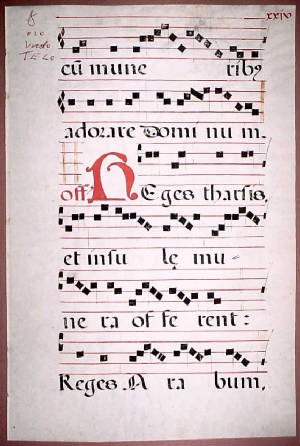 xxiv
cũ mune ribꝰ
adorare Domi nu m.
off. Reges tharsis,
et insu lę mu-
ne ra of fe rent:
Reges A ra bum,